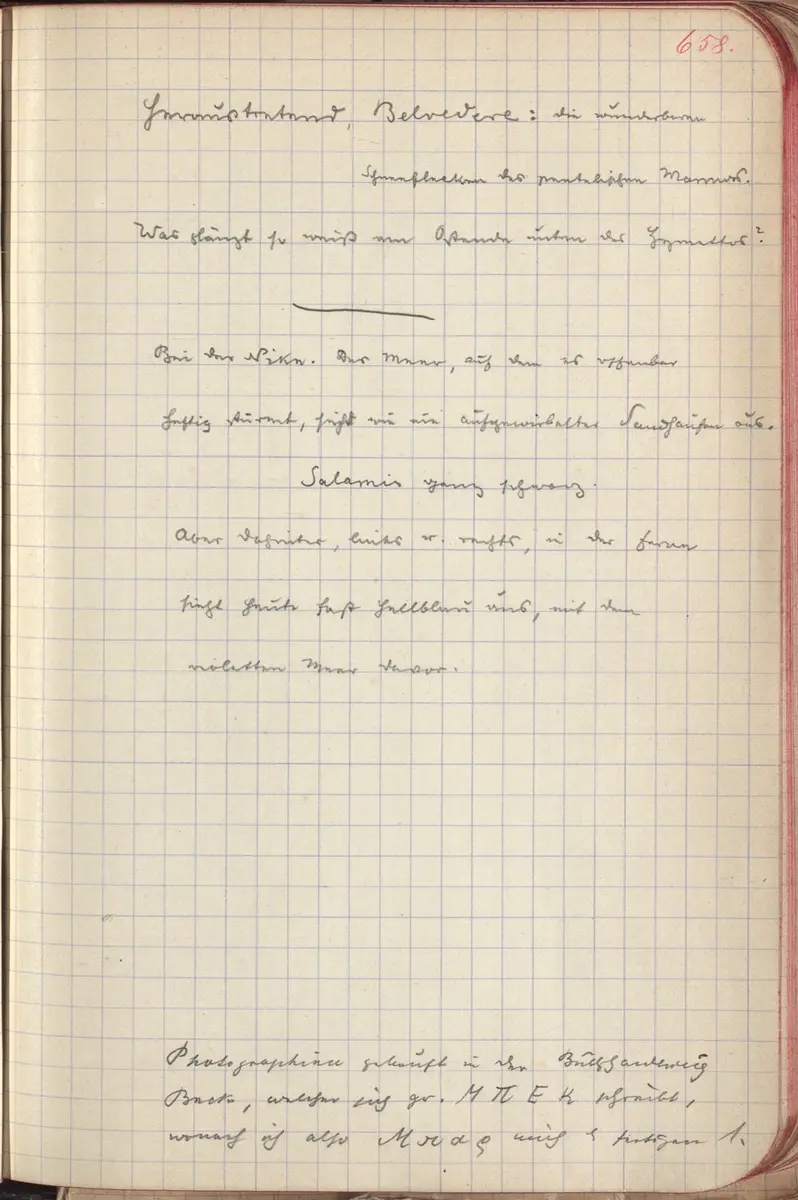 658.
Heraustretend, Belvedere: die wunderbaren
Schneeflecken des pentelischen Marmors.
Was glänzt so weiß am Ostende unten des Hymettos?
Bei der Nike. Das Meer, auf dem es offenbar
heftig stürmt, sieht wie ein aufgewirbelter Sandhaufen aus.
Salamis ganz schwarz.
Aber dahinter, links u. rechts, in der Ferne
sieht heute fast hellblau aus, mit dem
violetten Meer davor.
Photographien gekauft in der Buchhandlung
Beck, welcher sich gr. ΜΠΕΚ schreibt,
wonach ich also Μπαρ mich